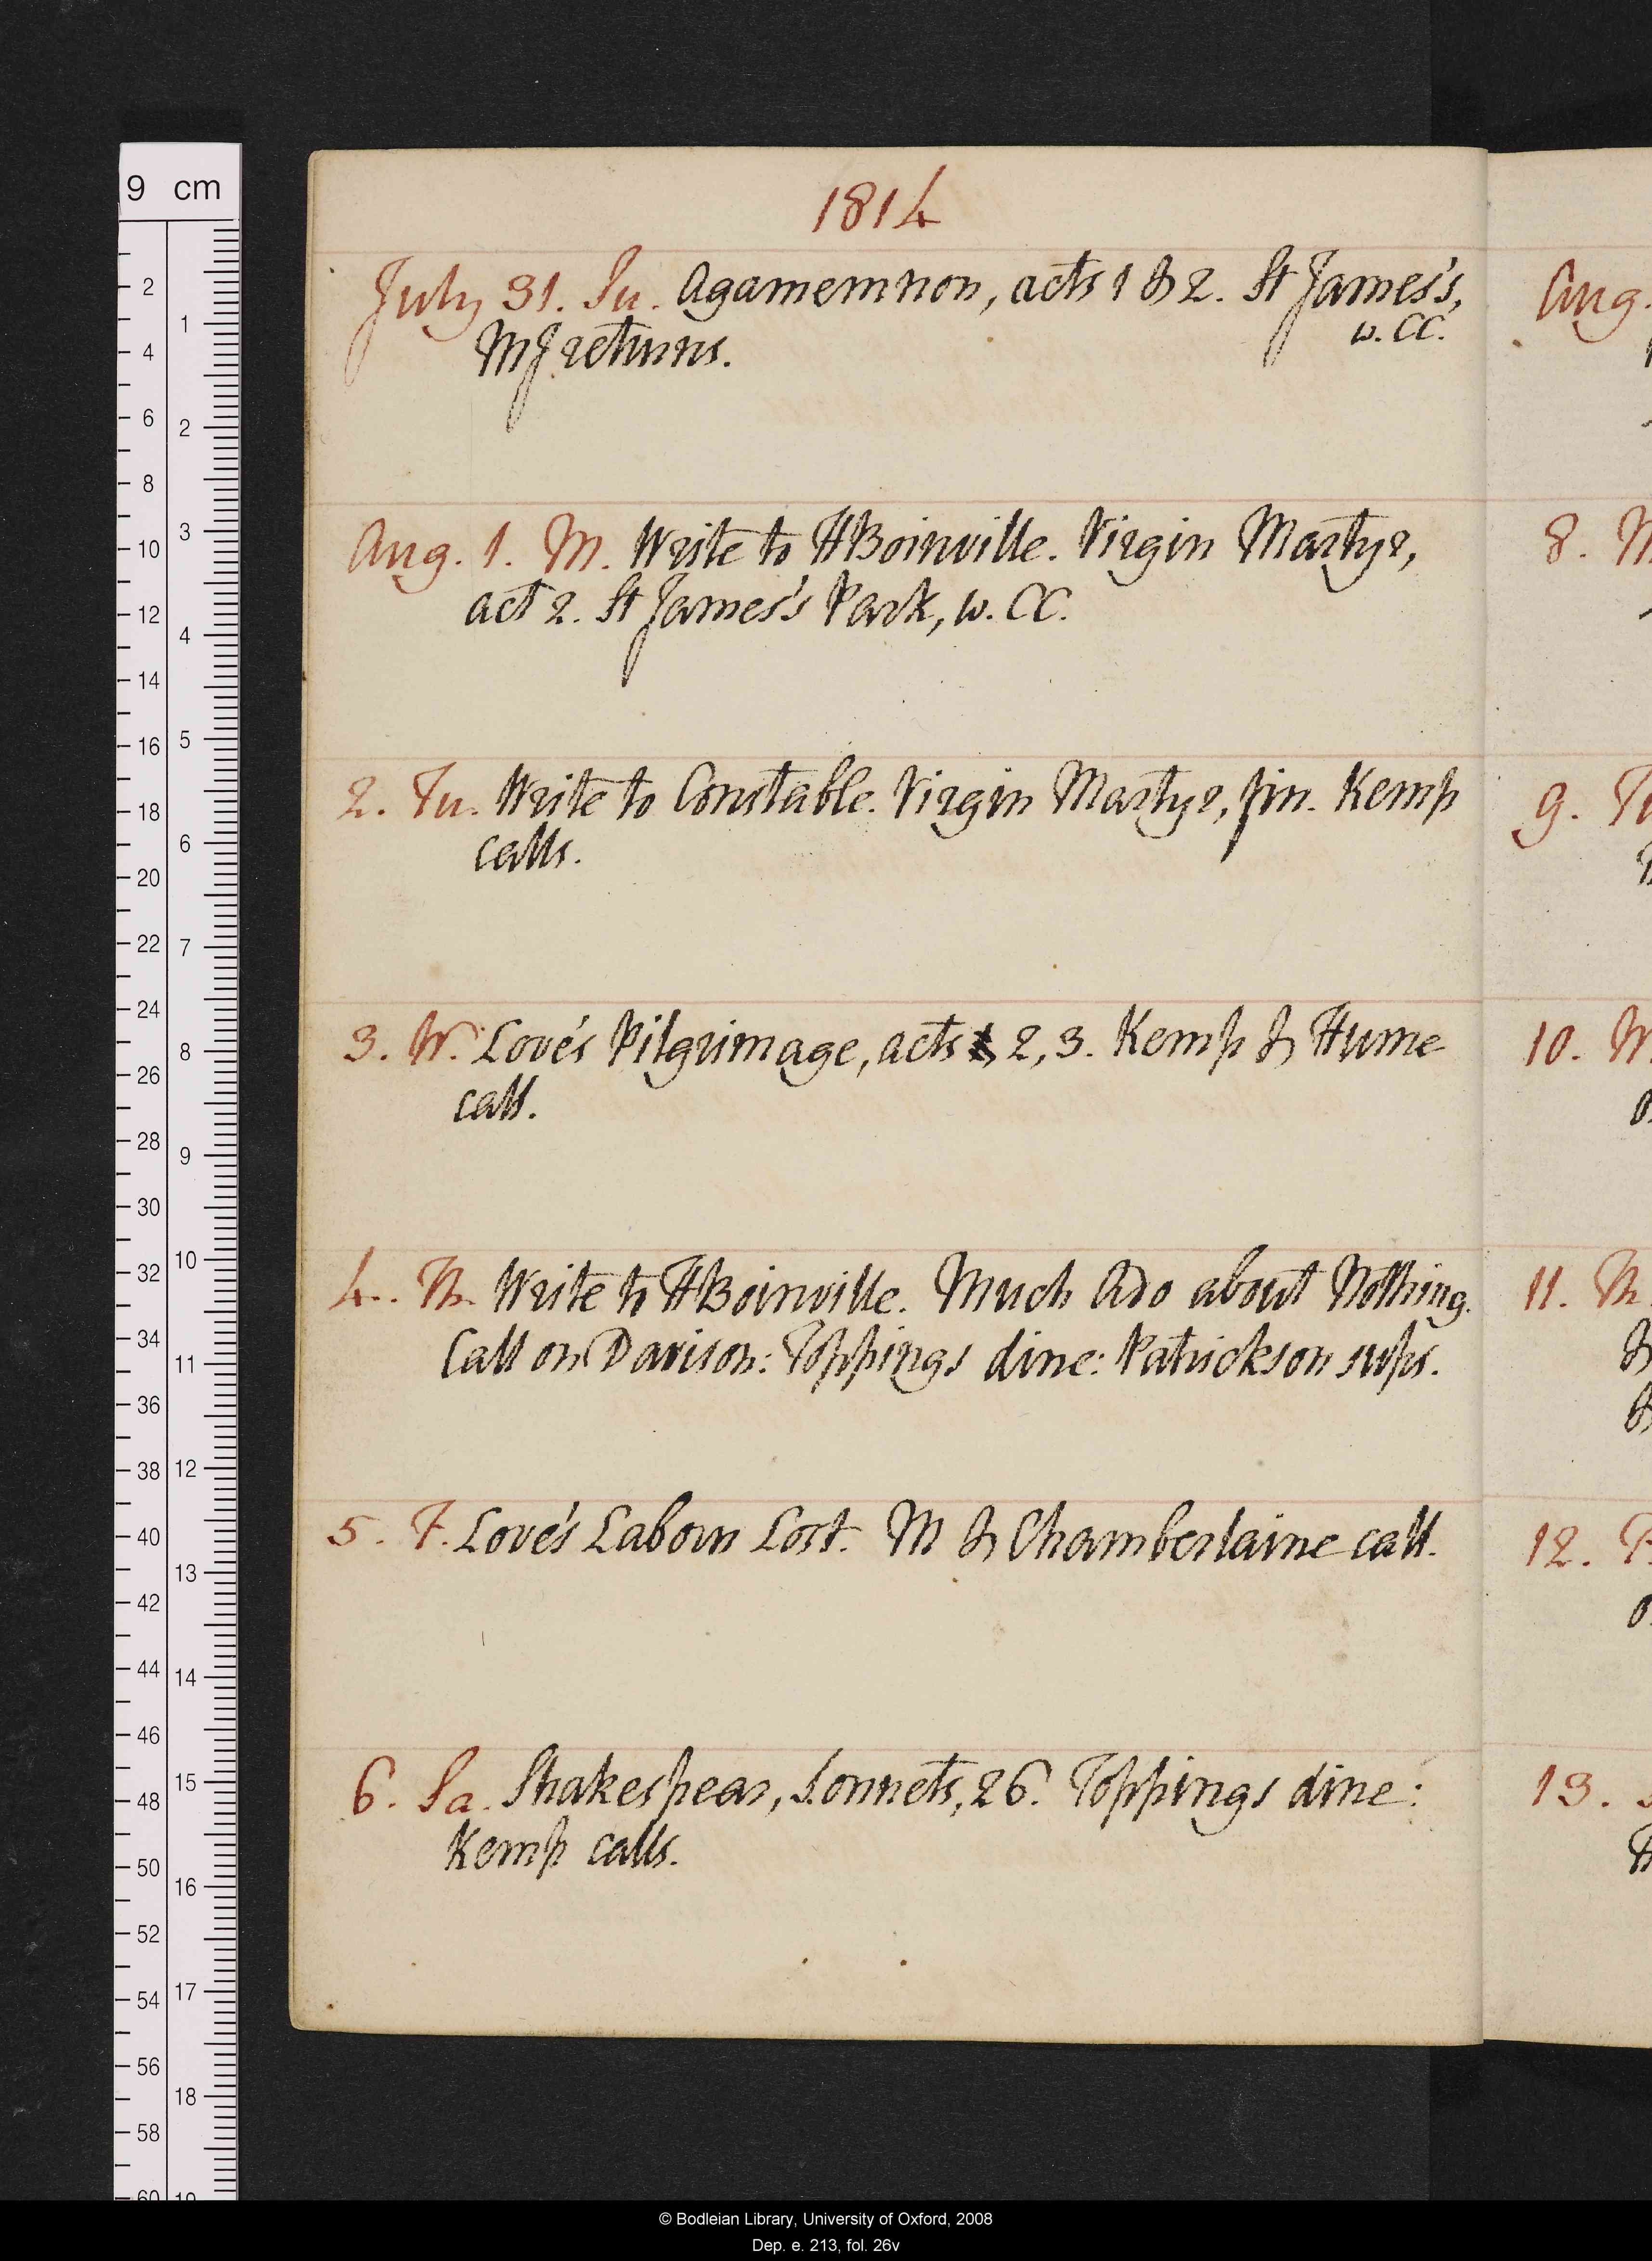 1814
July 31. Su. Agamemnon, acts 1 & 2. St James's,
w. CC.
MJ returns.
Aug. 1. M. Write to HBoinville. Virgin Martyr,
act 2. St James's Park, w. CC.
2. Tu. Write to Constable. Virgin Martyr, fin. Kemp
calls.
3. W. Love's Pilgrimage, acts 2, 3. Kemp & Hume
call.
4. Th. Write to HBoinville. Much Ado about Nothing.
Call on Davison: Toppings dine: Patrickson sups.
5. F. Love's Labour Lost. M & Chamberlaine call.
6. Sa. Shakespear, Sonnets, 26. Toppings dine:
Kemp calls.
Aug.
8. M
9. Tu
10. W
11. Th
12. F
13.
9 cm
2
4
6
8
10
12
14
16
18
20
22
24
26
28
30
32
34
36
38
40
42
44
46
48
50
52
54
56
58
60
1
2
3
4
5
6
7
8
9
10
11
12
13
14
15
16
17
18
19
© Bodleian Library, University of Oxford, 2008
Dep. e. 213, fol. 26v